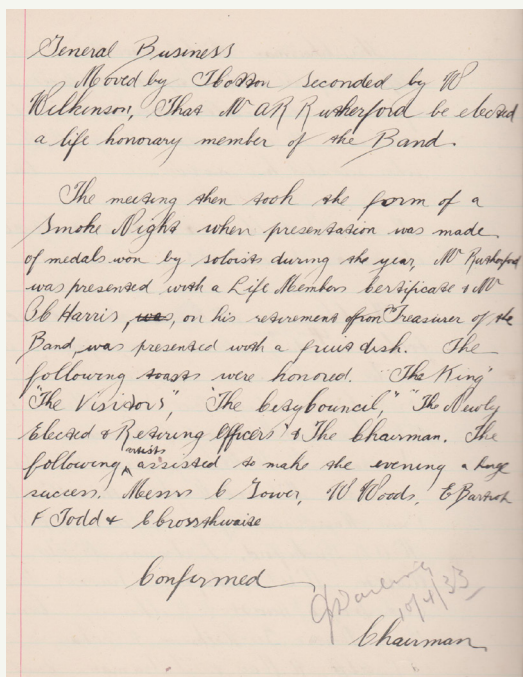 General Business
Moved by T Botton Seconded by W
Wilkinson, That Mr A R Rutherford be elected
a life honorary member of the Band.
The meeting then took the form of a
Smoke Night when presentation was made
of medals won by soloists during the year, Mr Rutherford
was presented with a Life Members Certificate & Mr
C C Harris, was, on his retirement from Treasurer of the
Band, was presented with a fruit dish. The
following toasts were honored. "The King"
"The Visitors", "The City Council," "The Newly
Elected & Retiring Officers" & The Chairman. The
following artists assisted to make the evening a huge
success. Messrs C Gower, W Woods, E
F Todd & C Crossthwaite
Confirmed
10/4/33
Chairman